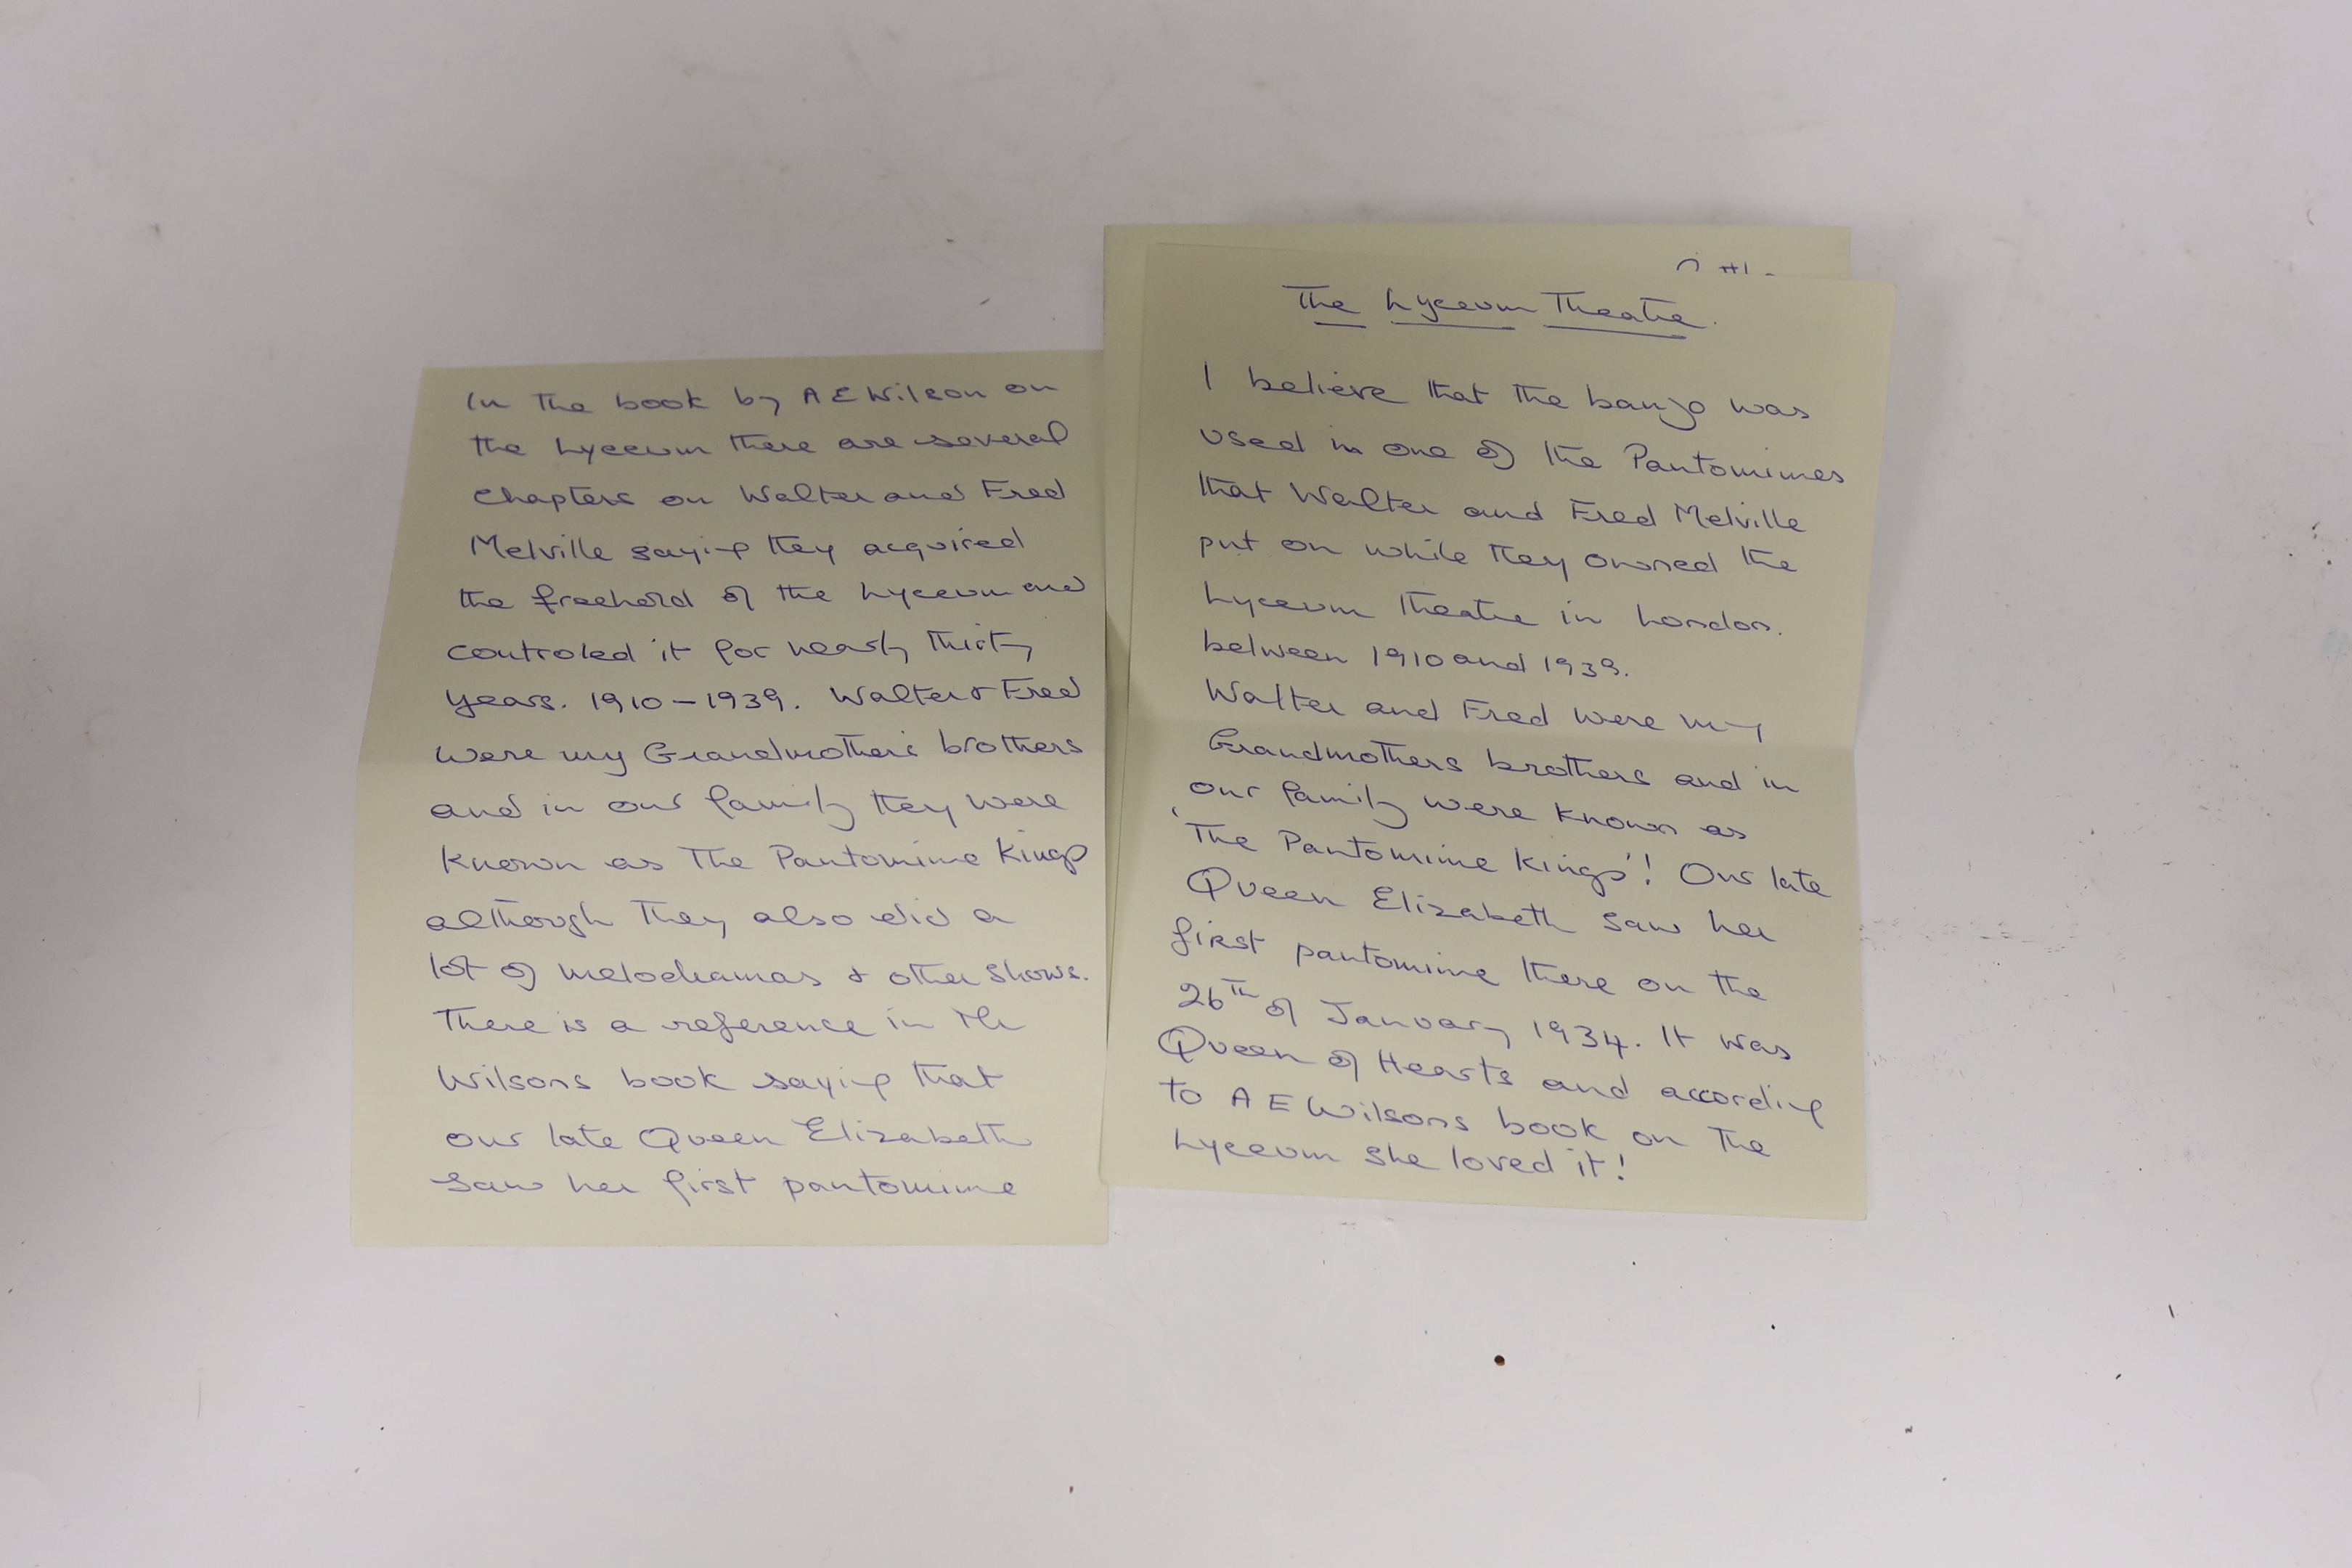 In the book by A E Wilson on
the Lyceum there are several
chapters on Walter and Fred
Melville saying they acquired
the freehold of the Lyceum and
controled it for nearly thirty
years. 1910 – 1939. Walter & Fred
were my Grandmothers brothers
and in our family they were
known as The Pantomime Kings
although they also did a
lot of melodramas & other shows.
There is a reference in Mr
Wilsons book saying that
our late Queen Elizabeth
saw her first pantomime
The Lyceum Theatre.
I believe that the banjo was
used in one of the Pantomimes
that Walter and Fred Melville
put on while they owned the
Lyceum Theatre in London.
between 1910 and 1939.
Walter and Fred were my
Grandmothers brothers and in
our family were known as
'The Pantomime Kings'! Our late
Queen Elizabeth saw her
first pantomime there on the
26TH of January 1934. It was
Queen of Hearts and according
to A E Wilsons book on the
Lyceum she loved it!